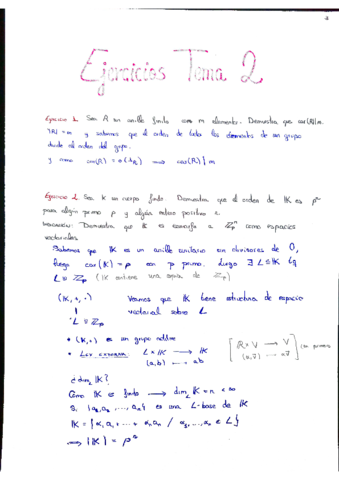 4
Ejercicios Tema 2
Ejercicio 1. Sea R un anillo finito con m elementos. Demuestra que car(R)|m.
|R| = m y sabemos que el orden de todos los elementos de un grupo
divide al orden del grupo.
y como car(R) = o(1_R) ⟹ car(R) | m
Ejercicio 2. Sea K un cuerpo finito. Demuestra que el orden de K es pⁿ
para algún primo p y algún entero positivo n.
Demuestra que K es isomorfo a ℤ_pⁿ como espacios
vectoriales.
Sabemos que K es un anillo unitario sin divisores de 0,
luego car(K) = p con p primo. Luego ∃ L ≤ K tq
L ≅ ℤ_p (K contiene una copia de ℤ_p)
(K, +, ·) Veamos que K tiene estructura de espacio
L ≅ ℤ_p vectorial sobre L
• (K, +) es un grupo aditivo
• Ley externa: L × K ⟶ K [ R × V ⟶ V ]
(a, b) ⟶ ab
¿dim_L K?
Como K es finito ⟶ dim_L K = n < ∞
Si {a₁, a₂, ..., aₙ} es una L-base de K
K = { α₁a₁ + ... + αₙaₙ / α₁, ..., αₙ ∈ L }
⟹ |K| = pⁿ